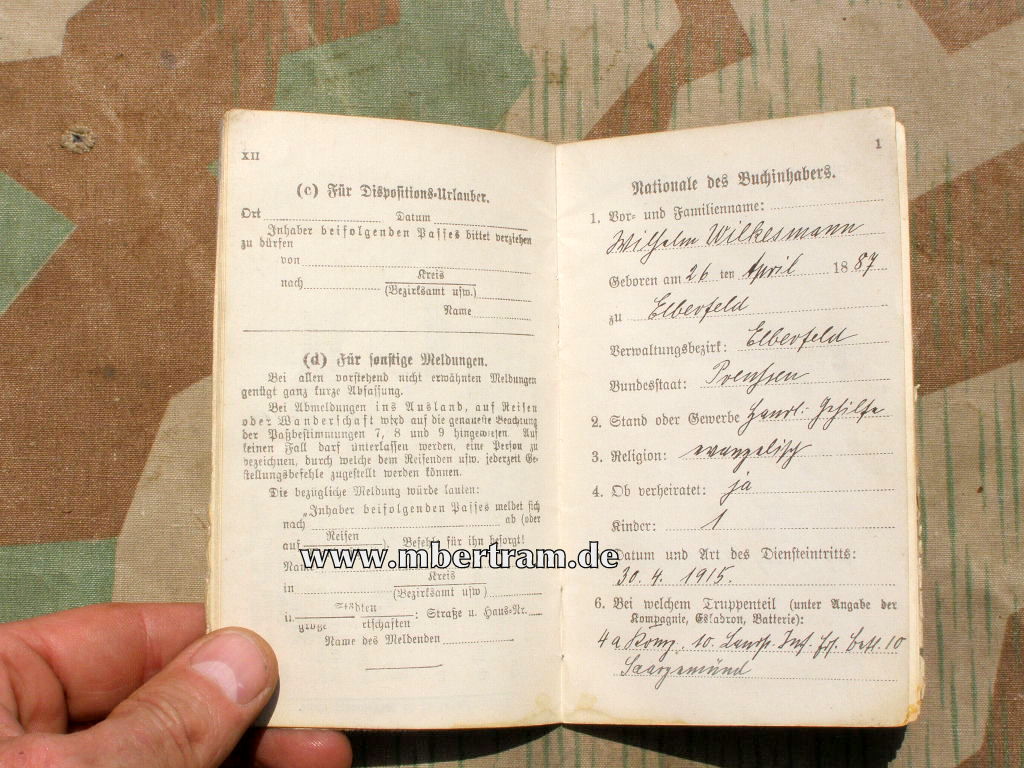 XII
(c) Für Dispositions-Urlauber.
Ort Datum
Inhaber beifolgenden Passes bittet verziehen
zu dürfen
von
nach Kreis
(Bezirksamt usw.)
Name
(d) Für sonstige Meldungen.
Bei allen vorstehend nicht erwähnten Meldungen
genügt ganz kurze Abfassung.
Bei Abmeldungen ins Ausland, auf Reisen
oder Wanderschaft wird auf die genaueste Beachtung
der Paßbestimmungen 7, 8 und 9 hingewiesen. Auf
keinen Fall darf unterlassen werden, eine Person zu
bezeichnen, durch welche dem Reisenden usw. jederzeit Ge-
stellungsbefehle zugestellt werden können.
Die bezügliche Meldung würde lauten:
„Inhaber beifolgenden Passes meldet sich
nach ab (oder
auf Reisen). Befehle für ihn besorgt!
Name
in Kreis
(Bezirksamt usw)
u. Städten
größe rtschaften: Straße u. Haus-Nr.
Name des Meldenden
www.mbertram.de
1
Nationale des Buchinhabers.
1. Vor- und Familienname:
Wilhelm Wilkesmann
Geboren am 26 ten April 1887
zu Elberfeld
Verwaltungsbezirk: Elberfeld
Bundesstaat: Preußen
2. Stand oder Gewerbe Handl. Gehilfe
3. Religion: evangelisch
4. Ob verheiratet: ja
Kinder: 1
Datum und Art des Diensteintritts:
30. 4. 1915.
6. Bei welchem Truppenteil (unter Angabe der
Kompagnie, Eskadron, Batterie):
4a Komp. 10. Landst. Inf. Ers. Batl. 10
Saargemünd